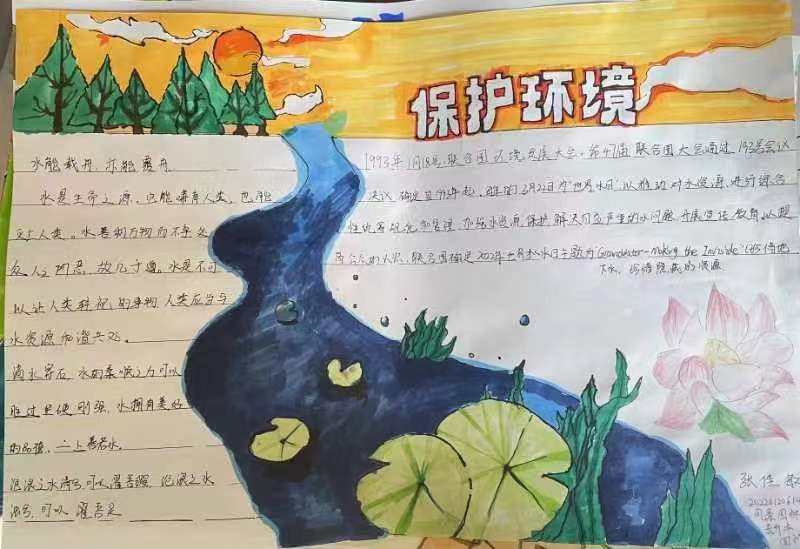 保护环境
水能载舟,亦能覆舟
水是生命之源,它能哺育人类,也能
反对人类。水善利万物而不争处
众人之所恶,故几于道。水是不可
以让人类转化的事物人类应当与
水资源和谐共处。
滴水穿石,水的柔顺之力可以
胜过坚硬刚强,水拥有美好
的品德,上善若水。
沧浪之水清兮可以濯吾缨,沧浪之水
浊兮,可以濯吾足
1993年1月18号,联合国环境发展大会,第47届联合国大会通过193号会议
决议,确定自1993年起,每年的3月22日为"世界水日",以推动对水资源进行综合
性统筹规划和管理,加强水资源保护,解决日益严重的水问题,开展宣传教育,以提
高公众的认识,联合国确定2022年世界水日主题为"Groundwater-Making the Invisible"(珍惜地
下水,珍惜隐藏的资源
张佳